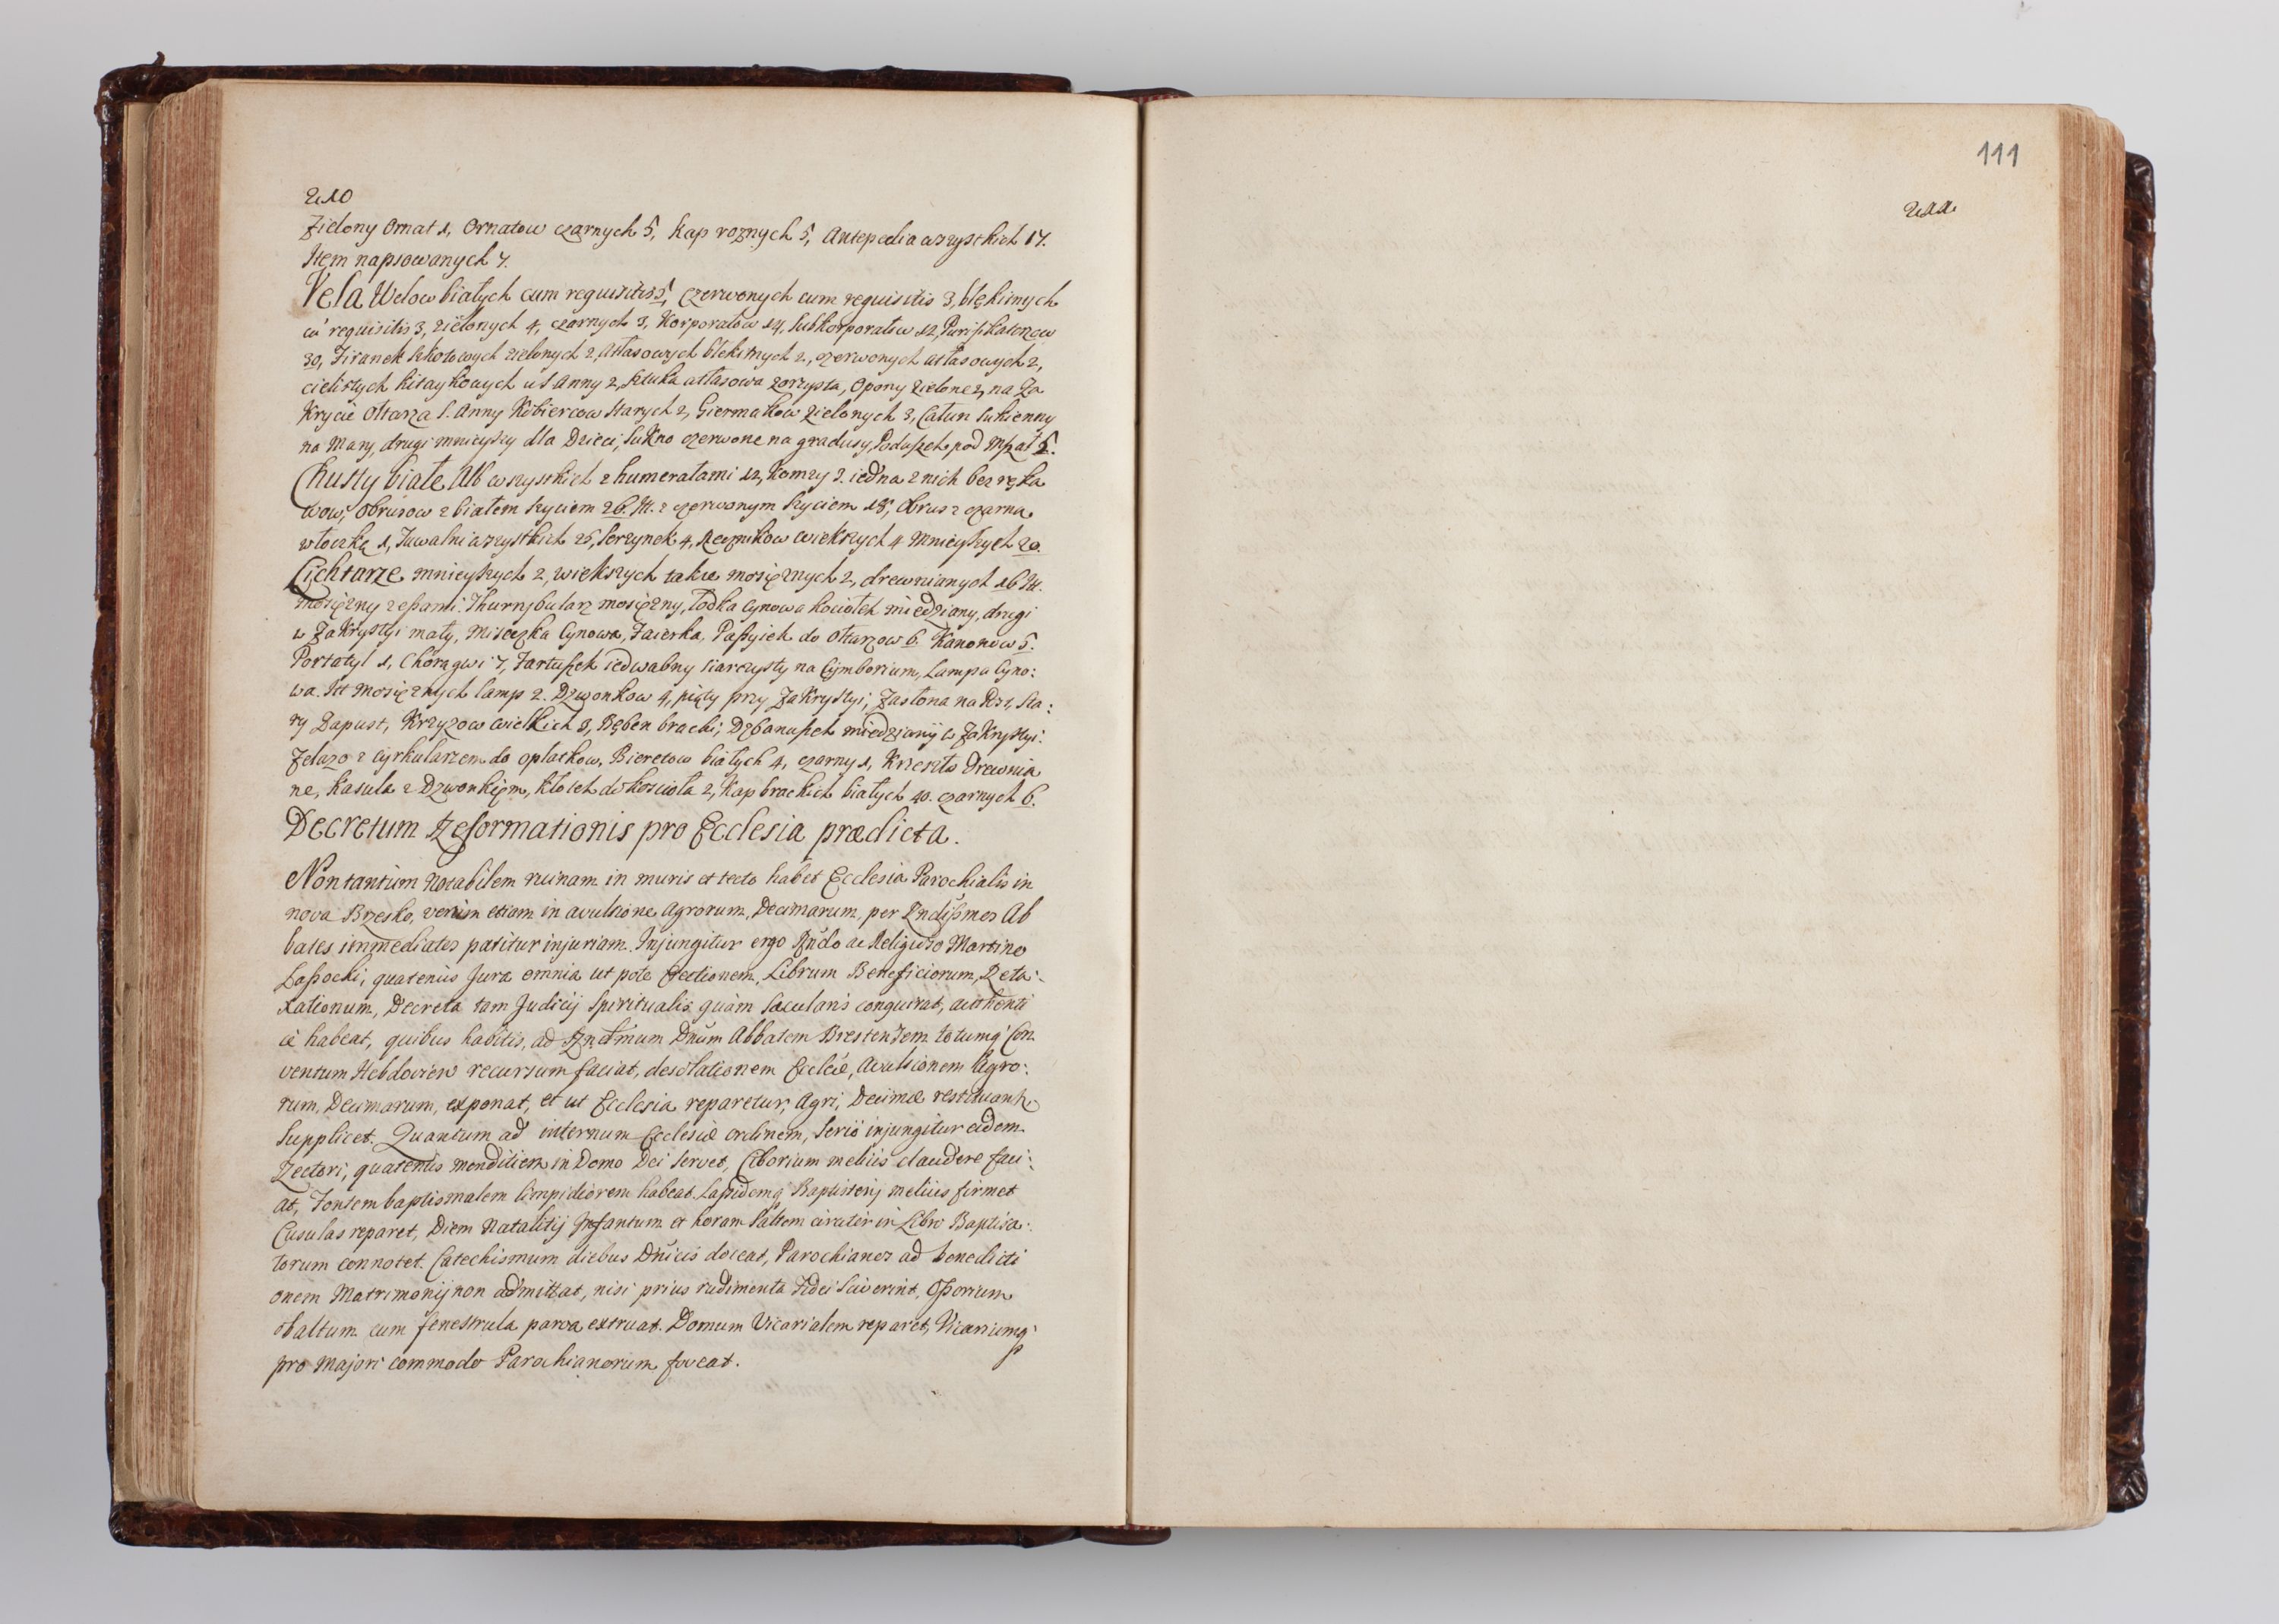 210
Zielony Ornat 1, Ornatow czarnych 5, Kap roznych 5, Antepedia wszystkich 17.
Item napsowanych 7.
Vela Welow białych cum requisitis 5, czerwonych cum requisitis 3, błękitnych
cū requisitis 3, zielonych 4, czarnych 3, Korporałow 14, Subkorporałow 12, Purifikaterzow
30, Firanek zielonych 2, Atłasowych błekitnych 2, czerwonych atłasowych 2,
cielistych kitaykowych u S Anny 2, sztuka atłasowa zorzysta, Opony zielone 2, na Za
krycie Ołtarza S. Anny Kobiercow starych 2, Giermakow zielonych 3, Całun sukienny
na Mary, drugi mnieyszy dla Dzieci, Sukno czerwone na gradusy, Poduszek pod Mszał 5.
Chusty białe Alb wszystkich z humerałami 12, Komzy 3. iedna z nich bez ręka
wow, Obrusow z białem szyciem 26. It. z czerwonym szyciem 18, Obrus z czarną
włoczką 1, Tuwalni wszystkich 25, 4, Ręcznikow wiekszych 4 Mnieyszych 20.
Lichtarze mnieyszych 2, wiekszych także mosięznych 2, drewnianych 16 It.
mosięzny z essami. Thurybularz mosięzny, łodka Cynowa kociołek miedziany, drugi
w Zakrystyi mały, Miseczka Cynowa, Faierka, Passyiek do ołtarzow 6. Kanonow 5.
Portatyl 1, Chorągwi 7, Fartuszek iedwabny siarczysty na Cymborium, Lampa Cyno:
wa. Itt mosięznych lamp 2. Dzwonkow 4, piąty przy Zakrystyi, Zasłona na Sta:
ry Zapust, Krzyzow wielkich 3, Bęben bracki, Dzbanuszek miedziany w Zakrystyi.
Zelazo z cyrkularzem do opłatkow, Bieretow białych 4, czarny 1, Krzesło Drewnia
ne, Kasula z Dzwonkięm, do kościoła 2, Kap brackich białych 40. czarnych 6.
Decretum Reformationis pro Ecclesia prædicta.
Non tantum notabilem ruinam in muris et tecto habet Ecclesia Parochialis in
nova Brzesko, verùm etiam in avulsione Agrorum, Decimarum, per Rndissmos Ab
bates immediatos patitur injuriam. Injungitur ergo Rńdo ac Religioso Martino
Łapocki, quatenùs Jura omnia ut pote Erectionem, Librum Beneficiorum, Reta:
xationum, Decreta tam Judicij Spiritualis quàm Sæcularis conquirat, authenti
cè habeat, quibus habitis, ad Dnūm Abbatem Brestensem totumq́ Con
ventum Hebdovien recursum faciat, desolationem Ecclæ, Avulsionem Agro:
rum, Decimarum, exponat, et ut Ecclesia reparetur, Agri, Decimæ restituant
Supplicet. Quantum ad internum Ecclesiæ ordinem, Seriò injungitur eidem
Rectori, quatenùs munditiem in Domo Dei servet, Ciborium meliùs claudere faci:
at, Fontem baptismalem limpidiorem habeat Lapidemq́ Baptisterij meliùs firmet
Casulas reparet, Diem Natalitij Infantum et horam saltem circiter in Libro Baptisa:
torum connotet. Catechismum diebus Dnicis doceat, Parochianos ad benedicti
onem Matrimonij non admittat, nisi prius rudimenta Fidei Sciverint, Ossorium
obaltum cum fenestrula parva extruat. Domum Vicarialem reparet, Vicariumq́
pro majori commodo Parochianorum foveat.
111
211